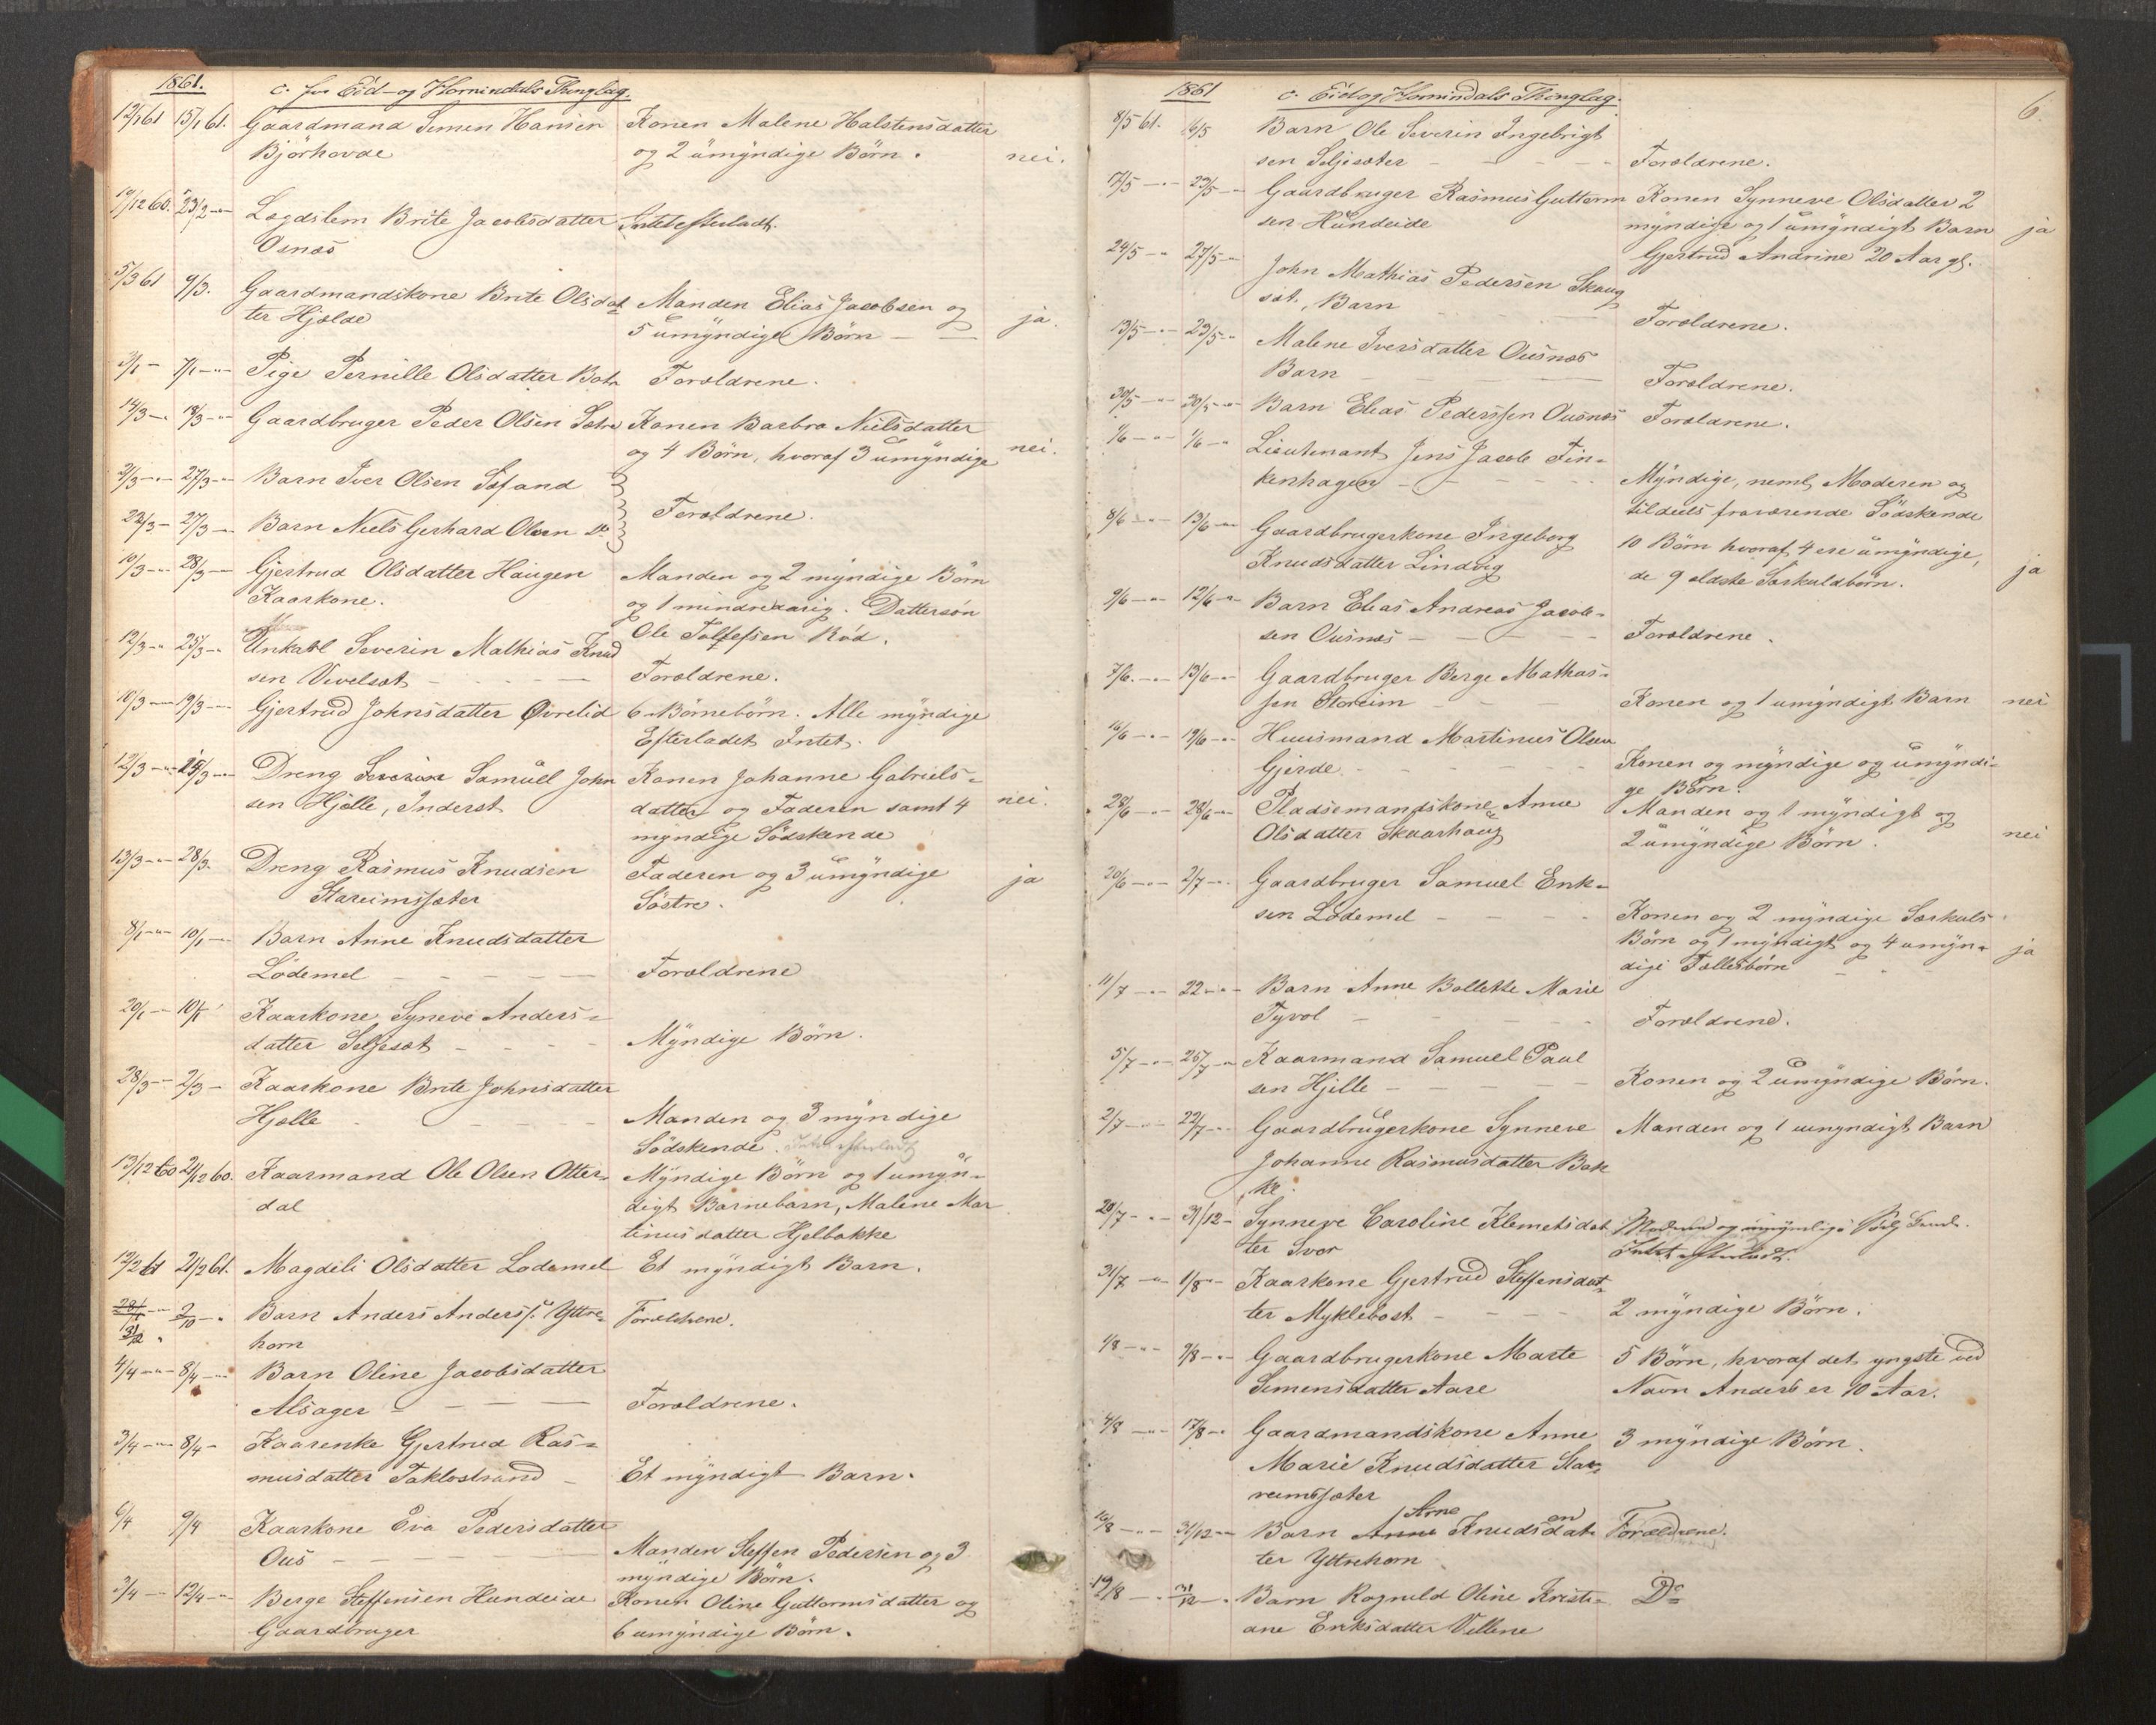 1861.
c. for Eid- og Hornindals Thinglag.
12/1 61 15/1 61. Gaardmand Simen Hansen Konen Malene Halstensdatter
Bjørhovde og 2 umyndige Børn. nei.
19/12 60. 23/2 -"- Lægdslem Brite Jacobsdatter Intet efterladt.
Osnæs
5/3 61 9/3. Gaardmandskone Brite Olsdat Manden Elias Jacobsen og
ter Hjelde 5 umyndige Børn - - ja.
3/1 - 7/1 -"- Pige Pernille Olsdatter Forældrene.
14/3 -"- 18/3 -"- Gaardbruger Peder Olsen Konen Barbro Nielsdatter
og 4 Børn, hvoraf 3 umyndige nei.
21/3 -"- 27/3 -"- Barn Iver Olsen
Forældrene.
22/3 - 27/3 -"- Barn Niels Gerhard Olsen Do
10/3 -"- 28/3 -"- Gjertrud Olsdatter Haugen Manden og 2 myndige Børn
Kaarkone. og 1 mindreaarig. Dattersøn
Ole Tollefsen Rød.
12/3 -"- 25/3 -"- Unkarl Severin Mathias Knud
sen Vevelsæt - - - Forældrene.
10/3 -"- 19/3 -"- Gjertrud Johnsdatter Øvrelid 6 Børnebørn. Alle myndige
Efterladet Intet.
12/3 -"- 25/3 -"- Dreng Severin Samuel John Konen Johanne Gabriels-
sen Hjelle, Inderst datter og Faderen samt 4 nei.
myndige Södskende
13/3 -"- 28/3. Dreng Rasmus Knudsen Faderen og 3 umyndige ja
Stareimssæter Søstre.
8/1 -"- 10/1 -"- Barn Anne Knudsdatter
Lødemel - - - - Forældrene
20/1 -"- 10/1 Kaarkone Syneve Anders-
datter Seljesæt - - - - Myndige Børn.
28/3 -"- 2/3 - Kaarkone Brite Johnsdatter
Hjelle - - - - Manden og 3 myndige
Södskende. Intet efterladt
13/12 60 21/12 60. Kaarmand Ole Olsen Otter- Myndige Børn og 1 umyn-
dal digt Barnebarn, Malene Mar
tinusdatter Hjelbakke
12/2 61 21/2 61. Magdeli Olsdatter Lødemel Et myndigt Barn.
28/1 -"- 2/10 -"- Barn Anders Anders. Yttre- Forældrene.
31/12 " horn
4/4 -"- 8/4 -"- Barn Oline Jacobsdatter
Alsager - - - - Forældrene.
3/4 -"- 8/4 - Kaarenke Gjertrud Ras-
musdatter Taklostrand - Et myndigt Barn.
6/4 9/4 Kaarkone Eva Pedersdatter
Ous - - - - Manden Steffen Pedersen og 3
myndige Børn.
3/4 -"- 12/4 -"- Berge Steffensen Hundeide Konen Oline Guttormsdatter og
Gaardbruger 6 umyndige Børn.
1861 c. Eid og Hornindals Thinglag. 6.
8/5 61. 16/5 Barn Ole Severin Ingebrigt
sen Seljesæter - - - Forældrene.
17/5 -"- 23/5 -"- Gaardbruger Rasmus Guttorm Konen Synneve Olsdatter 2
sen Hundeide myndige og 1 umyndigt Barn ja
Gjertrud Andrine 20 Aar gl.
24/5 -"- 27/5 -"- John Mathias Pedersen Skaug
sæt, Barn - - - Forældrene.
13/5 -"- 23/5 -"- Malene Iversdatter Ousnæs
Barn - - - - Forældrene.
30/5 -"- 30/5 -"- Barn Elias Pederssen Ousnæs Forældrene.
1/6 -"- 1/6 -"- Lieutenant Jens Jacob Fin-
kenhagen - - - - Myndige, neml. Moderen og
tildeels fraværende Södskende
8/6 -"- 13/6 -"- Gaardbrugerkone Ingeborg 10 Børn hvoraf 4 ere umyndige,
Knudsdatter Lindvig de 9 ældste Særkuldbørn. ja
9/6 -"- 12/6 -"- Barn Elias Andreas Jacob-
sen Ousnæs - - - Forældrene.
7/6. -"- 13/6 -"- Gaardbruger Berge Mathias-
sen Storeim - - - Konen og 1 umyndigt Barn nei
16/6 -"- 19/6 -"- Huusmand Martinus Olsen
Gjerde - - - Konen og myndige og umyndi-
ge Børn.
28/6 -"- 28/6 -"- Pladsemandskone Anne Manden og 1 myndigt og
Olsdatter Skaarhaug 2 umyndige Børn. nei
20/6 -"- 2/7 -"- Gaardbruger Samuel Erik-
sen Lødemel - - - Konen og 2 myndige Særkuls
Børn og 1 myndigt og 4 umyn- ja
dige Fællesbørn
11/7 -"- 22 -"- Barn Anne Bollette Marie
Tyvol - - - Forældrene.
5/7 -"- 25/7 -"- Kaarmand Samuel Paul
sen Hjelle - - - Konen og 2 umyndige Børn.
2/7 -"- 22/7 -"- Gaardbrugerkone Synneve Manden og 1 umyndigt Barn
Johanne Rasmusdatter Bak
ke.
20/7 -"- 31/12 - Synneve Caroline Klemetsdat
ter Svor Intet efterladt.
31/7 -"- 1/8 -"- Kaarkone Gjertrud Steffensdat-
ter Myklebost - - - 2 myndige Børn.
1/8 -"- 9/8 -"- Gaardbrugerkone Marte 5 Børn, hvoraf det yngste ved
Simensdatter Aare Navn Anders er 10 Aar.
4/8 -"- 17/8 -"- Gaardmandskone Anne 3 myndige Børn.
Marie Knudsdatter Sta-
reimssæter
Arne en
16/8 -"- 31/12 -"- Barn Anne Knudsdat- Forældrene.
ter Yttrehorn
19/8 -"- 31/12 -"- Barn Ragnild Oline Kristi- Do
ane Eriksdatter Vellene